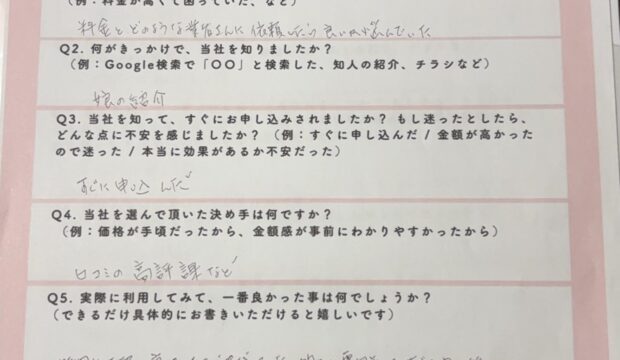 （例：料金が高くて困っていた、など）
料金とどのような業者さんに依頼したら良いか悩んでいた
Q2. 何がきっかけで、当社を知りましたか？
（例：Google検索で「〇〇」と検索した、知人の紹介、チラシなど）
娘の紹介
Q3. 当社を知って、すぐにお申し込みされましたか？ もし迷ったとしたら、
どんな点に不安を感じましたか？（例：すぐに申し込んだ / 金額が高かった
ので迷った / 本当に効果があるか不安だった）
すぐに申込んだ
Q4. 当社を選んで頂いた決め手は何ですか？
（例：価格が手頃だったから、金額感が事前にわかりやすかったから）
口コミの高評課など
Q5. 実際に利用してみて、一番良かった事は何でしょうか？
（できるだけ具体的にお書きいただけると嬉しいです）